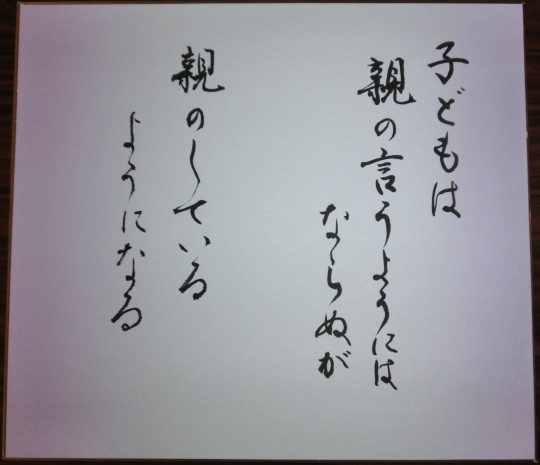 子どもは
親の言うようには
ならぬが
親のしている
ようになる